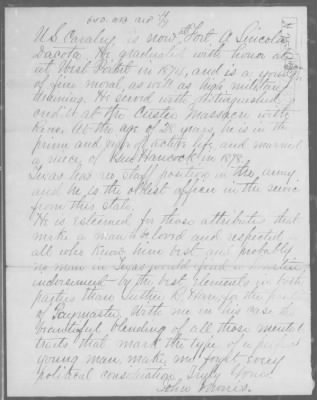 U.S. Cavalry, is now at Fort A. Lincoln
Dacota. He graduated with honor
at West Point in 1874, and is a young
of fine moral, as well as high military
training. He served with distinguished
and at the Custer Massacre with
Reno. At the age of 28 years, he is in the
prime and vigor of active life, and married
a niece of Genl Hancock in 1878.
Texas has no staff position in the army
and he is the oldest officer in the service
from this state.
He is esteemed for those attributes that
make a man beloved and respected,
all who know him best and probably
no man in Texas would find a heartier
indorsement by the best elements in both
parties than Luther R. Hare, for the position
of Paymaster. With me in his case the
beautiful blending of all those mental
traits that mark the type of a perfect
young man, make me forget every
political consideration. Truly Yours
John